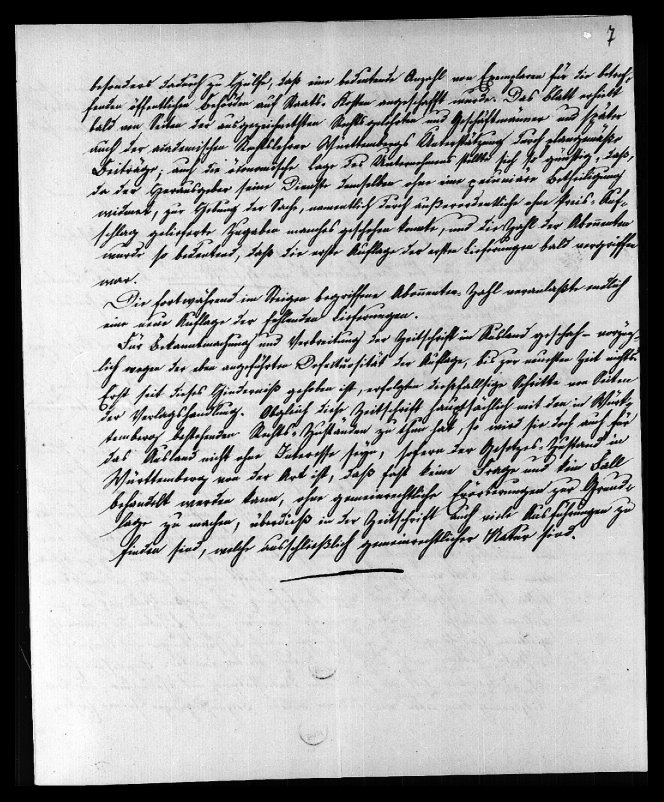 7
besonders dadurch zu Hülfe, daß eine bedeutende Anzahl von Exemplaren für die betref-
fenden öffentlichen Behörden auf Staats-Kosten angeschafft wurde. Das Blatt erhielt
bald von Seiten der ausgezeichnetsten Rechtsgelehrten und Geschäftsmänner und später
auch der academischen Rechtslehrer Württembergs Unterstützung durch planmäßige
Beiträge; auch die ökonomische Lage des Unternehmens stellte sich so günstig, daß,
da der Herausgeber seine Dienste demselben ohne eine pecuniäre Betheiligung
widmet, zur Hebung der Sache, namentlich durch außerordentliche ohne Preis-Auf-
schlag gelieferte Zugaben manches geschehen konnte, und die Zahl der Abonnenten
wurde so bedeutend, daß die erste Auflage der ersten Lieferungen bald vergriffen
war.
Die fortwährend im Steigen begriffene Abonnenten-Zahl veranlaßte endlich
eine neue Auflage der fehlenden Lieferungen.
Für Bekanntmachung und Verbreitung der Zeitschrift im Ausland geschah vorzüg-
lich wegen der eben angeführten Defectuosität der Auflage, bis zur neuesten Zeit nichts.
Erst seit dieses Hinderniß gehoben ist, erfolgten dießfallsige Schritte von Seiten
der Verlagshandlung. Obgleich diese Zeitschrift hauptsächlich mit den in Würt-
temberg bestehenden Rechts-Zuständen zu thun hat, so wird sie doch auch für
das Ausland nicht ohne Interesse seyn, sofern der Gesetzes-Zustand in
Württemberg von der Art ist, daß fast keine Frage und kein Fall
behandelt werden kann, ohne gemeinrechtliche Erörterungen zur Grund-
lage zu machen, überdieß in der Zeitschrift auch viele Ausführungen zu
finden sind, welche ausschließlich gemeinrechtlicher Natur sind.